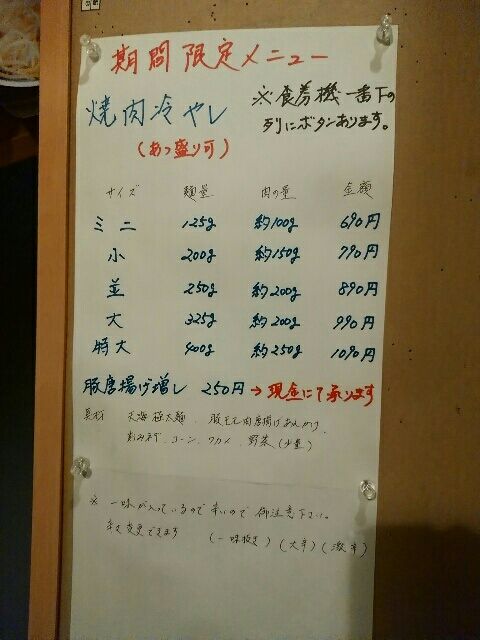 期間限定メニュー
焼肉冷やし
※食券機一番下の
列にボタンあります。
(あっ盛り可)
サイズ 麺量 肉の量 金額
ミニ 125g 約100g 690円
小 200g 約150g 790円
並 250g 約200g 890円
大 325g 約200g 990円
特大 400g 約250g 1090円
豚唐揚げ増し 250円→現金にて承ります
具材 極太麺、豚モモ肉唐揚げあんかけ
コーン、ワカメ、野菜(少量)
※一味が入っているので辛いので御注意下さい。
変更できます (一味抜き)(大辛)(激辛)